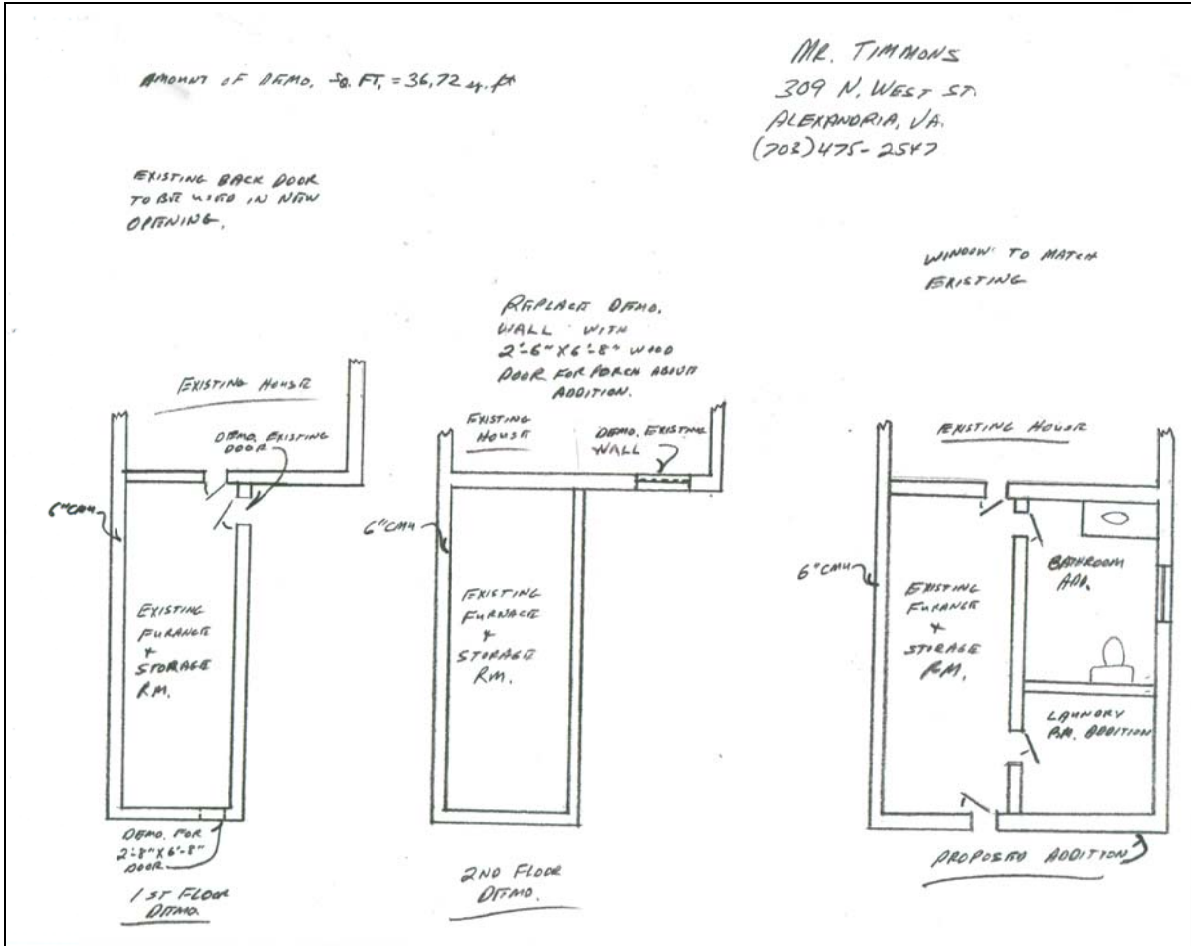 AMOUNT OF DEMO. SQ. FT. = 36.72 sq. ft
MR. TIMMONS
309 N. WEST ST.
ALEXANDRIA, VA.
(703) 475-2547
EXISTING BACK DOOR
TO BE USED IN NEW
OPENING.
WINDOW TO MATCH
EXISTING
REPLACE DEMO.
WALL WITH
2'-6" X 6'-8" WOOD
DOOR FOR PORCH ABOVE
ADDITION.
EXISTING HOUSE
DEMO. EXISTING
DOOR
6" CMU
EXISTING
FURANCE
+
STORAGE
RM.
DEMO. FOR
2'-8" X 6'-8"
DOOR
1ST FLOOR
DEMO.
EXISTING
HOUSE
DEMO. EXISTING
WALL
6" CMU
EXISTING
FURNACE
+
STORAGE
RM.
2ND FLOOR
DEMO.
EXISTING HOUSE
6" CMU
EXISTING
FURANCE
+
STORAGE
RM.
BATHROOM
ADD.
LAUNDRY
RM. ADDITION
PROPOSED ADDITION